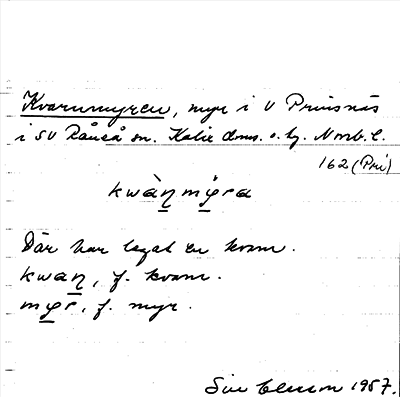 Kvarnmyren, myr i V Prinsnäs
i SV Råneå sn. Kalix dms. o. hg. Norrb. l.
162 (Pri)
kwàṉmy̱ra
Där har legat en kvarn.
kwaṉ, f. kvarn.
my̱r, f. myr.
1957.